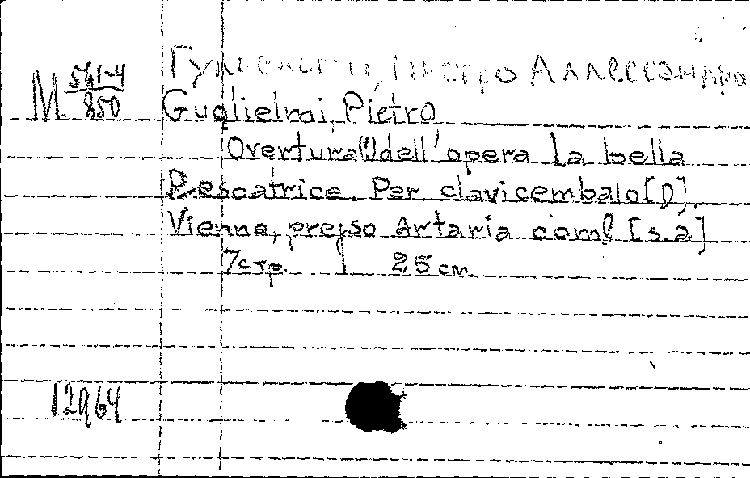 Гульельми, Пьетро Алессандро
М 561-4
850
Guglielmi, Pietro
Overtura(!) dell' opera La bella
Pescatrice. Per clavicembalo [!].
Vienna, presso Artaria comp [s.a]
7 стр. 25 cm
12964